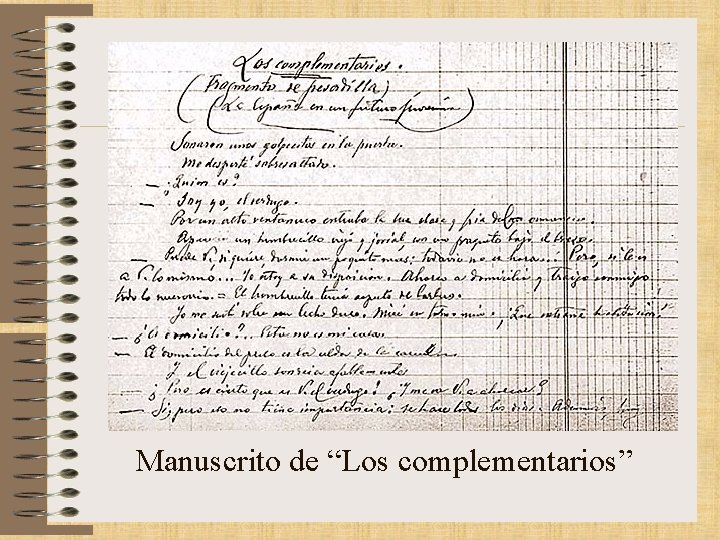 Los complementarios.
(Fragmento de pesadilla)
(La España en un futuro próximo)
Sonaron unos golpecitos en la puerta.
Me desperté sobresaltado.
— ¿Quien es?
— Soy yo, el verdugo.
Por un alto ventanuco entraba la luz clara y fria del
un hombrecillo viejo y jovial, con un paquete bajo el brazo.
— Puede V. si quiere dormir un poquito mas; todavia no es hora... Pero, si lo es
a V. lo mismo... Yo estoy a su disposicion. Ahorco a domicilio y traigo conmigo
todo lo necesario. = El hombrecillo tenia aspecto de barbero.
Yo me sobre un lecho duro. Miré en torno mio. ¡Que
— ¿A domicilio?... Esta no es mi casa.
— El domicilio del preso es la celda de la carcel
Y el viejecillo sonreia afablemente
¿Pero es cierto que es V. el verdugo? ¿Y me va V. a ahorcar?
— Si; pero eso no tiene importancia; se hace todos los dias. Además,
Manuscrito de “Los complementarios”